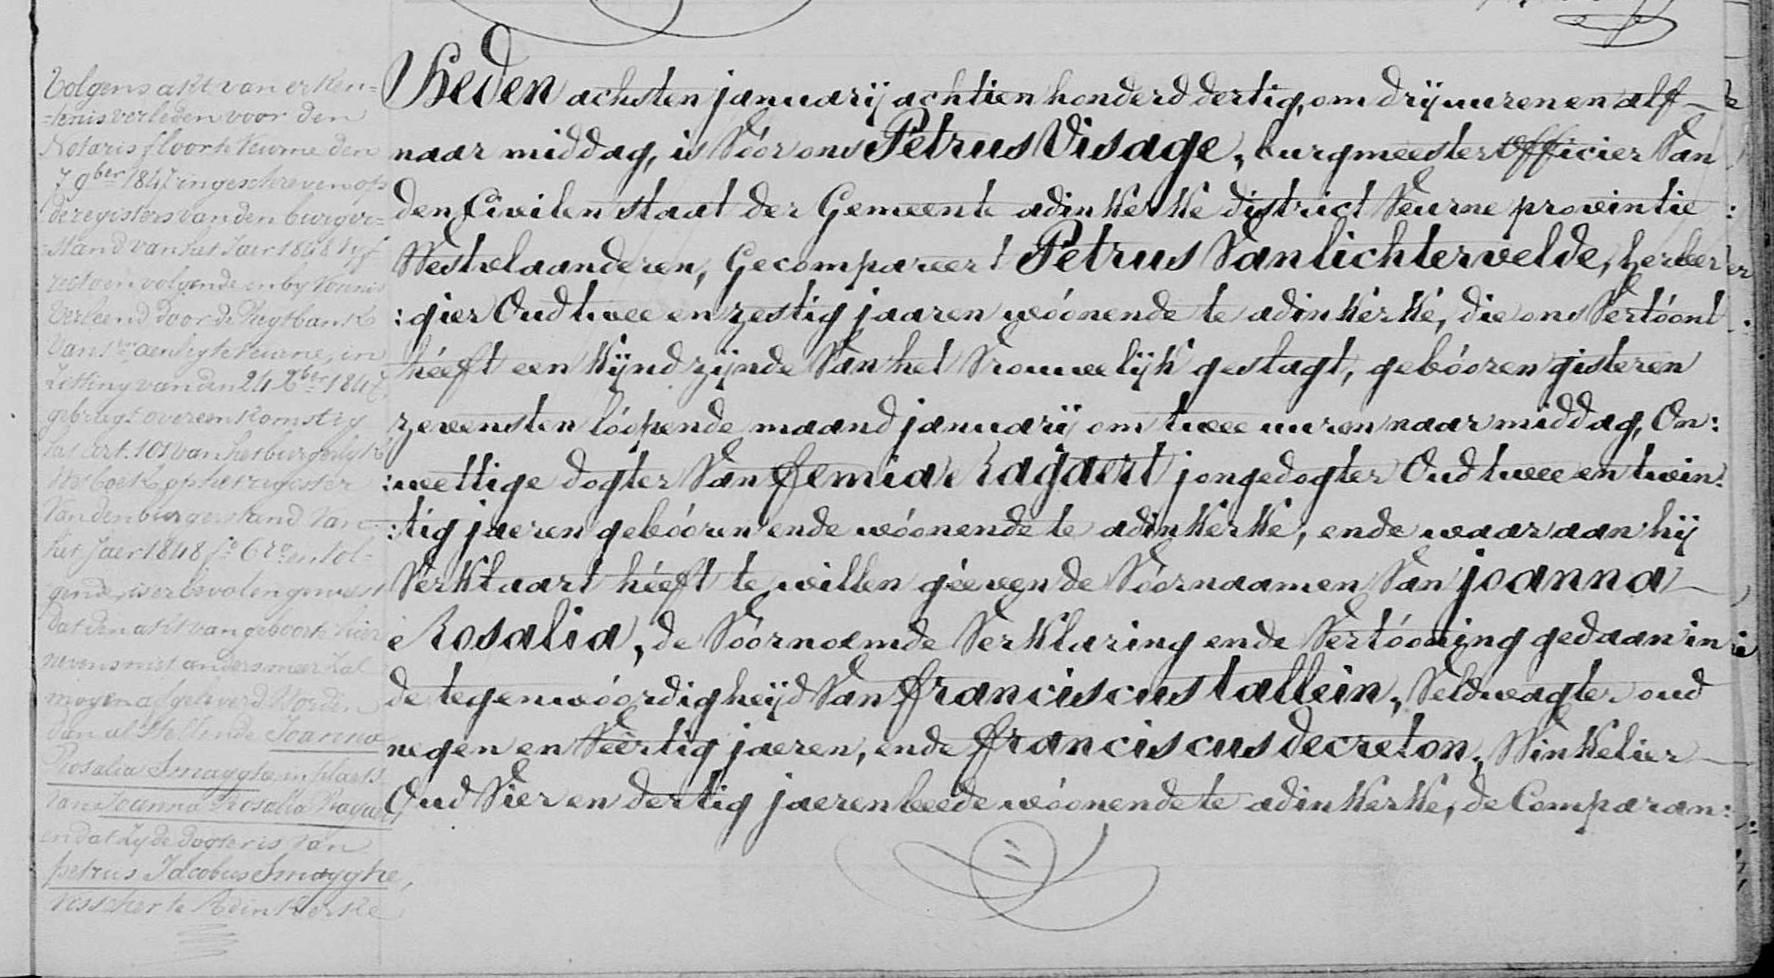 Volgens akt van erken-
-tenis verleden voor den
Notaris floor te Veurne den
7 9ber 1847 ingeschreven op
de registers van den burger-
-stand van het Jaer 1848 n
recto en volgende en by vonnis
verleend door de Regtbank
van aenleg te Veurne, in
Zitting van den 24 Xber 1847,
gebragt overeenkomstig
het art. 101 van het burgerlyk
Wetboek op het register
van den burgerstand van
het Jaer 1848 f° 6 r° en vol-
gende, is er bevolen geweest
dat den akt van geboorte hier
nevens niet anders meer zal
mogen afgeleverd worden
dan al stellende Joanna
Rosalia Smagghe in plaets
van Joanna Rosalia Ragaert
en dat zy de dogter is van
petrus Jacobus Smagghe,
visscher te Adinkerke
Heden achsten januarij achtien honderd dertig, om drij uuren en alf
naar middag, is vóór ons Petrus Visage, burgmeester officier van
den Civilen staat der Gemeente adinkerke district veurne provintie :
Westvlaanderen, Gecompareert Petrus Vanlichtervelde, herber
:gier Oud twee en zestig jaaren wóónende te adinkerke, die ons vertóónt
hééft een kijnd zijnde van het vrouwelijk geslagt, gebóóren gisteren
zevensten lóópende maand januarij om twee uuren naar middag, On:
:wettige dogter van femia Ragaert jongedogter Oud twee en twin:
:tig jaeren gebóóren ende wóónende te adinkerke, ende waar aan hij
verklaart hééft te willen géeven de vóórnaamen van joanna
Rosalia, de vóórnoemde verklaring ende vertóóning gedaan in
de tegenwóórdigheijd van franciscus tallein, veldwagter oud
negen en véértig jaeren, ende franciscus decreton, Winkelier
Oud vier en dertig jaeren beede wóónende te adinkerke, de Comparan: